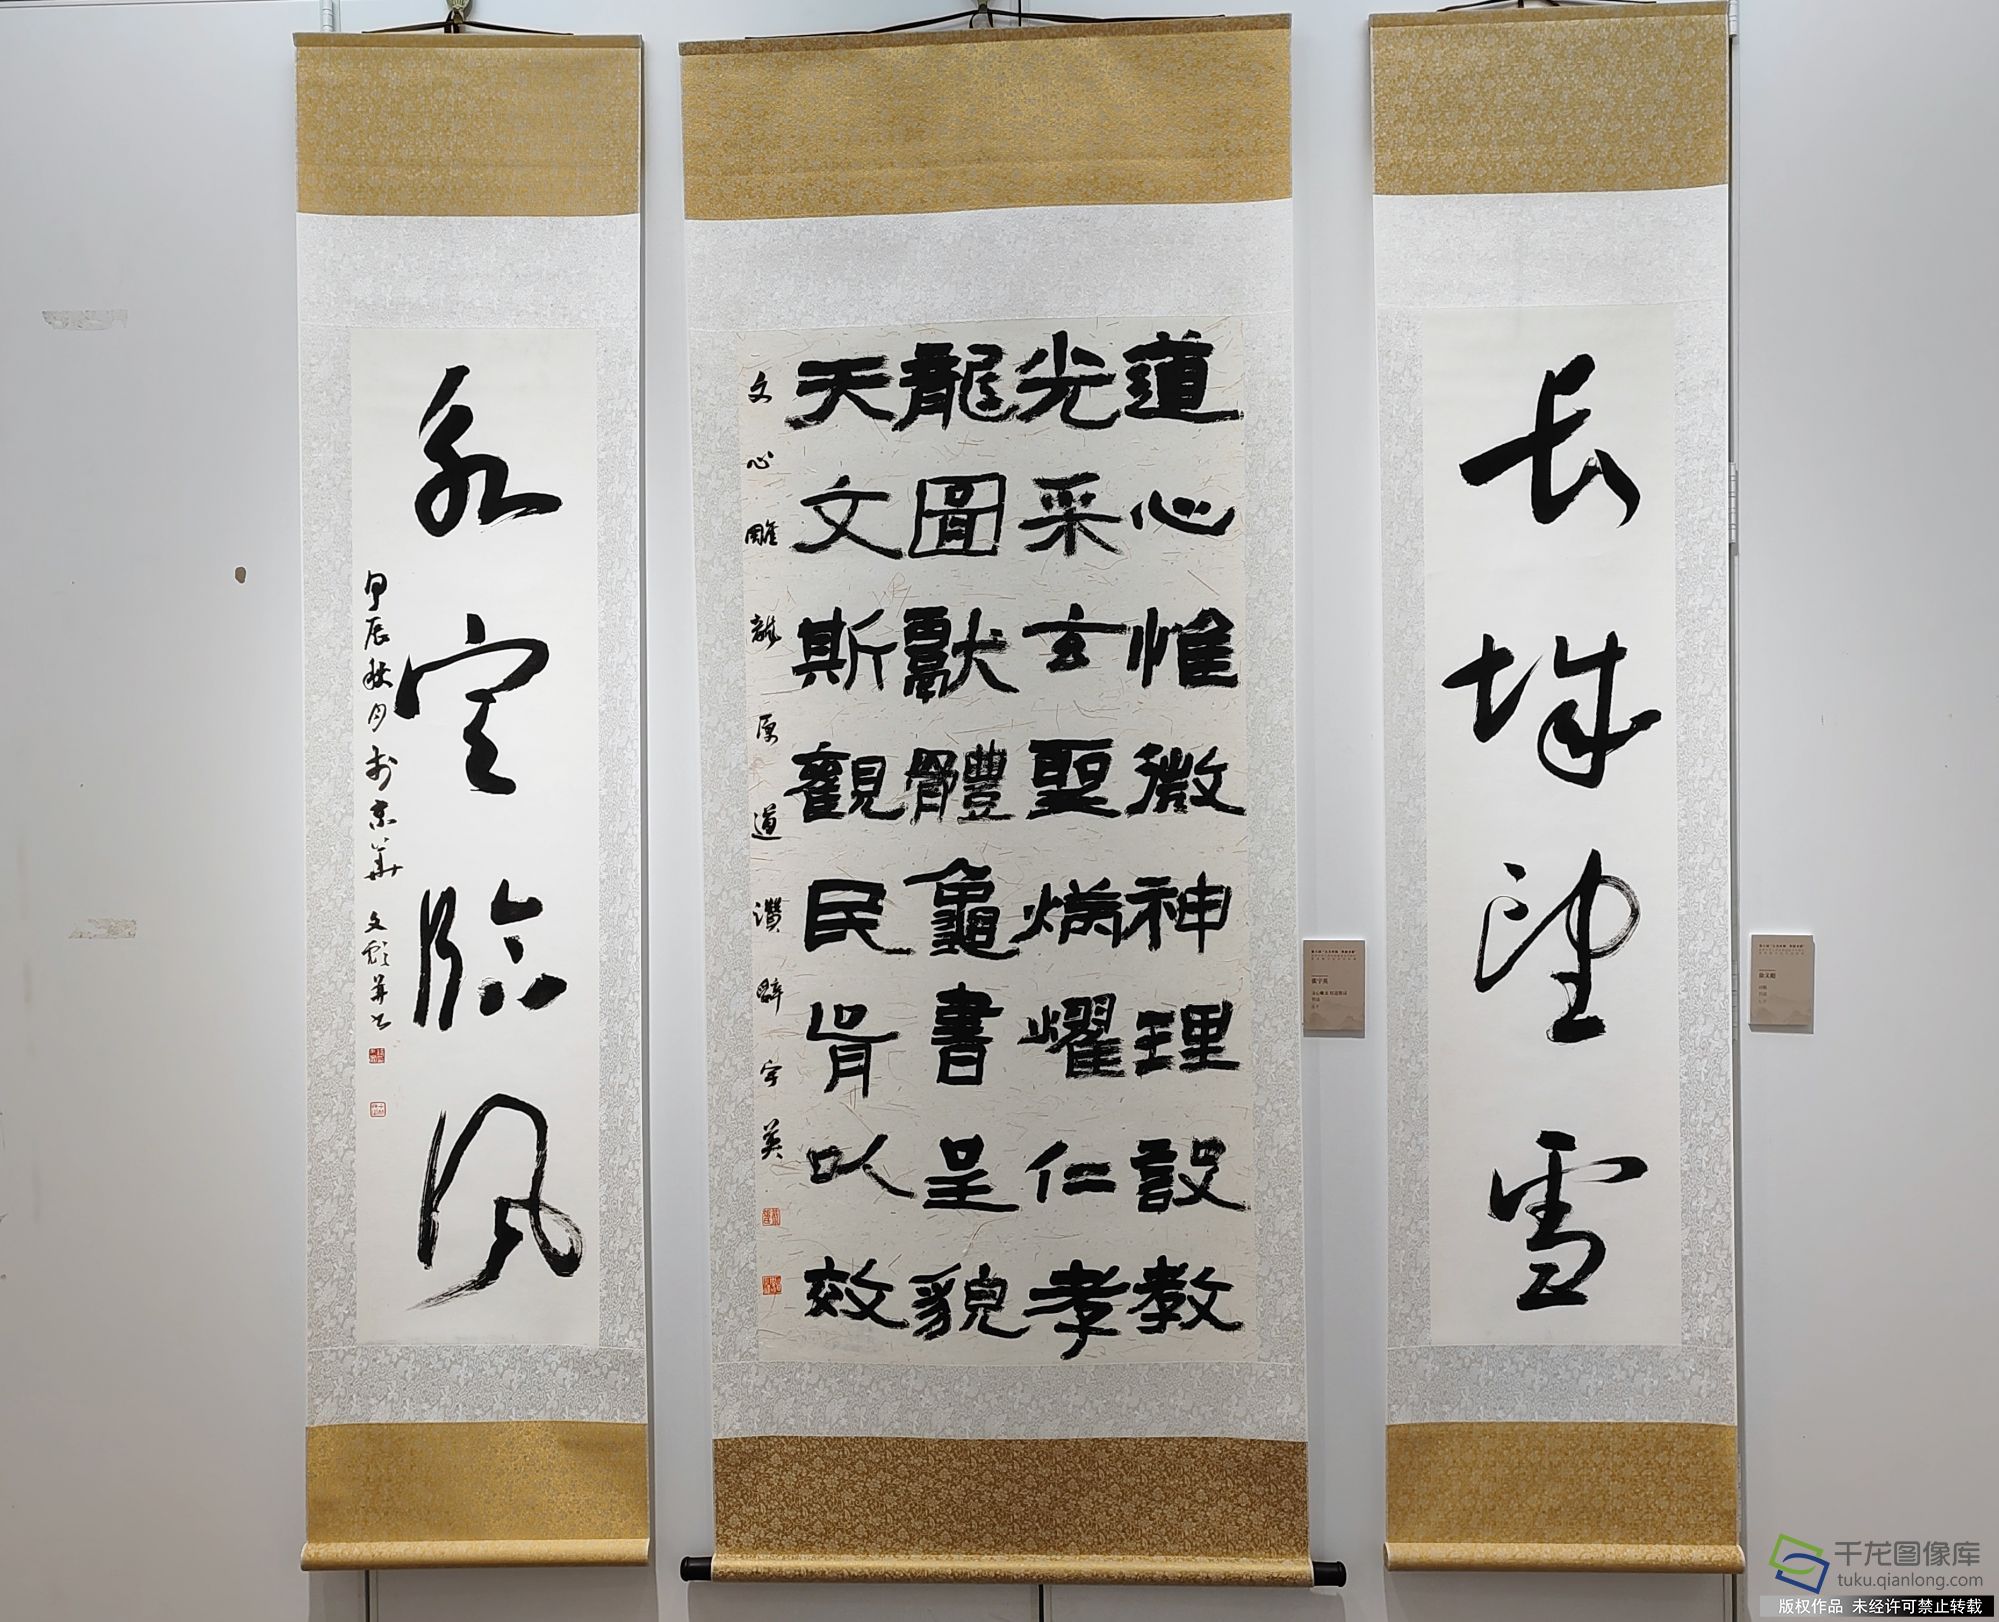 长城望雪
道心惟微神理設教
光采玄聖炳耀仁孝
龍圖獻體龜書呈貌
天文斯觀民胥以效
文心雕龍原道讚辭宇英
永定臨風
甲辰秋月於京華 文彪并书
千龙图像库
tuku.qianlong.com
版权作品 未经许可禁止转载